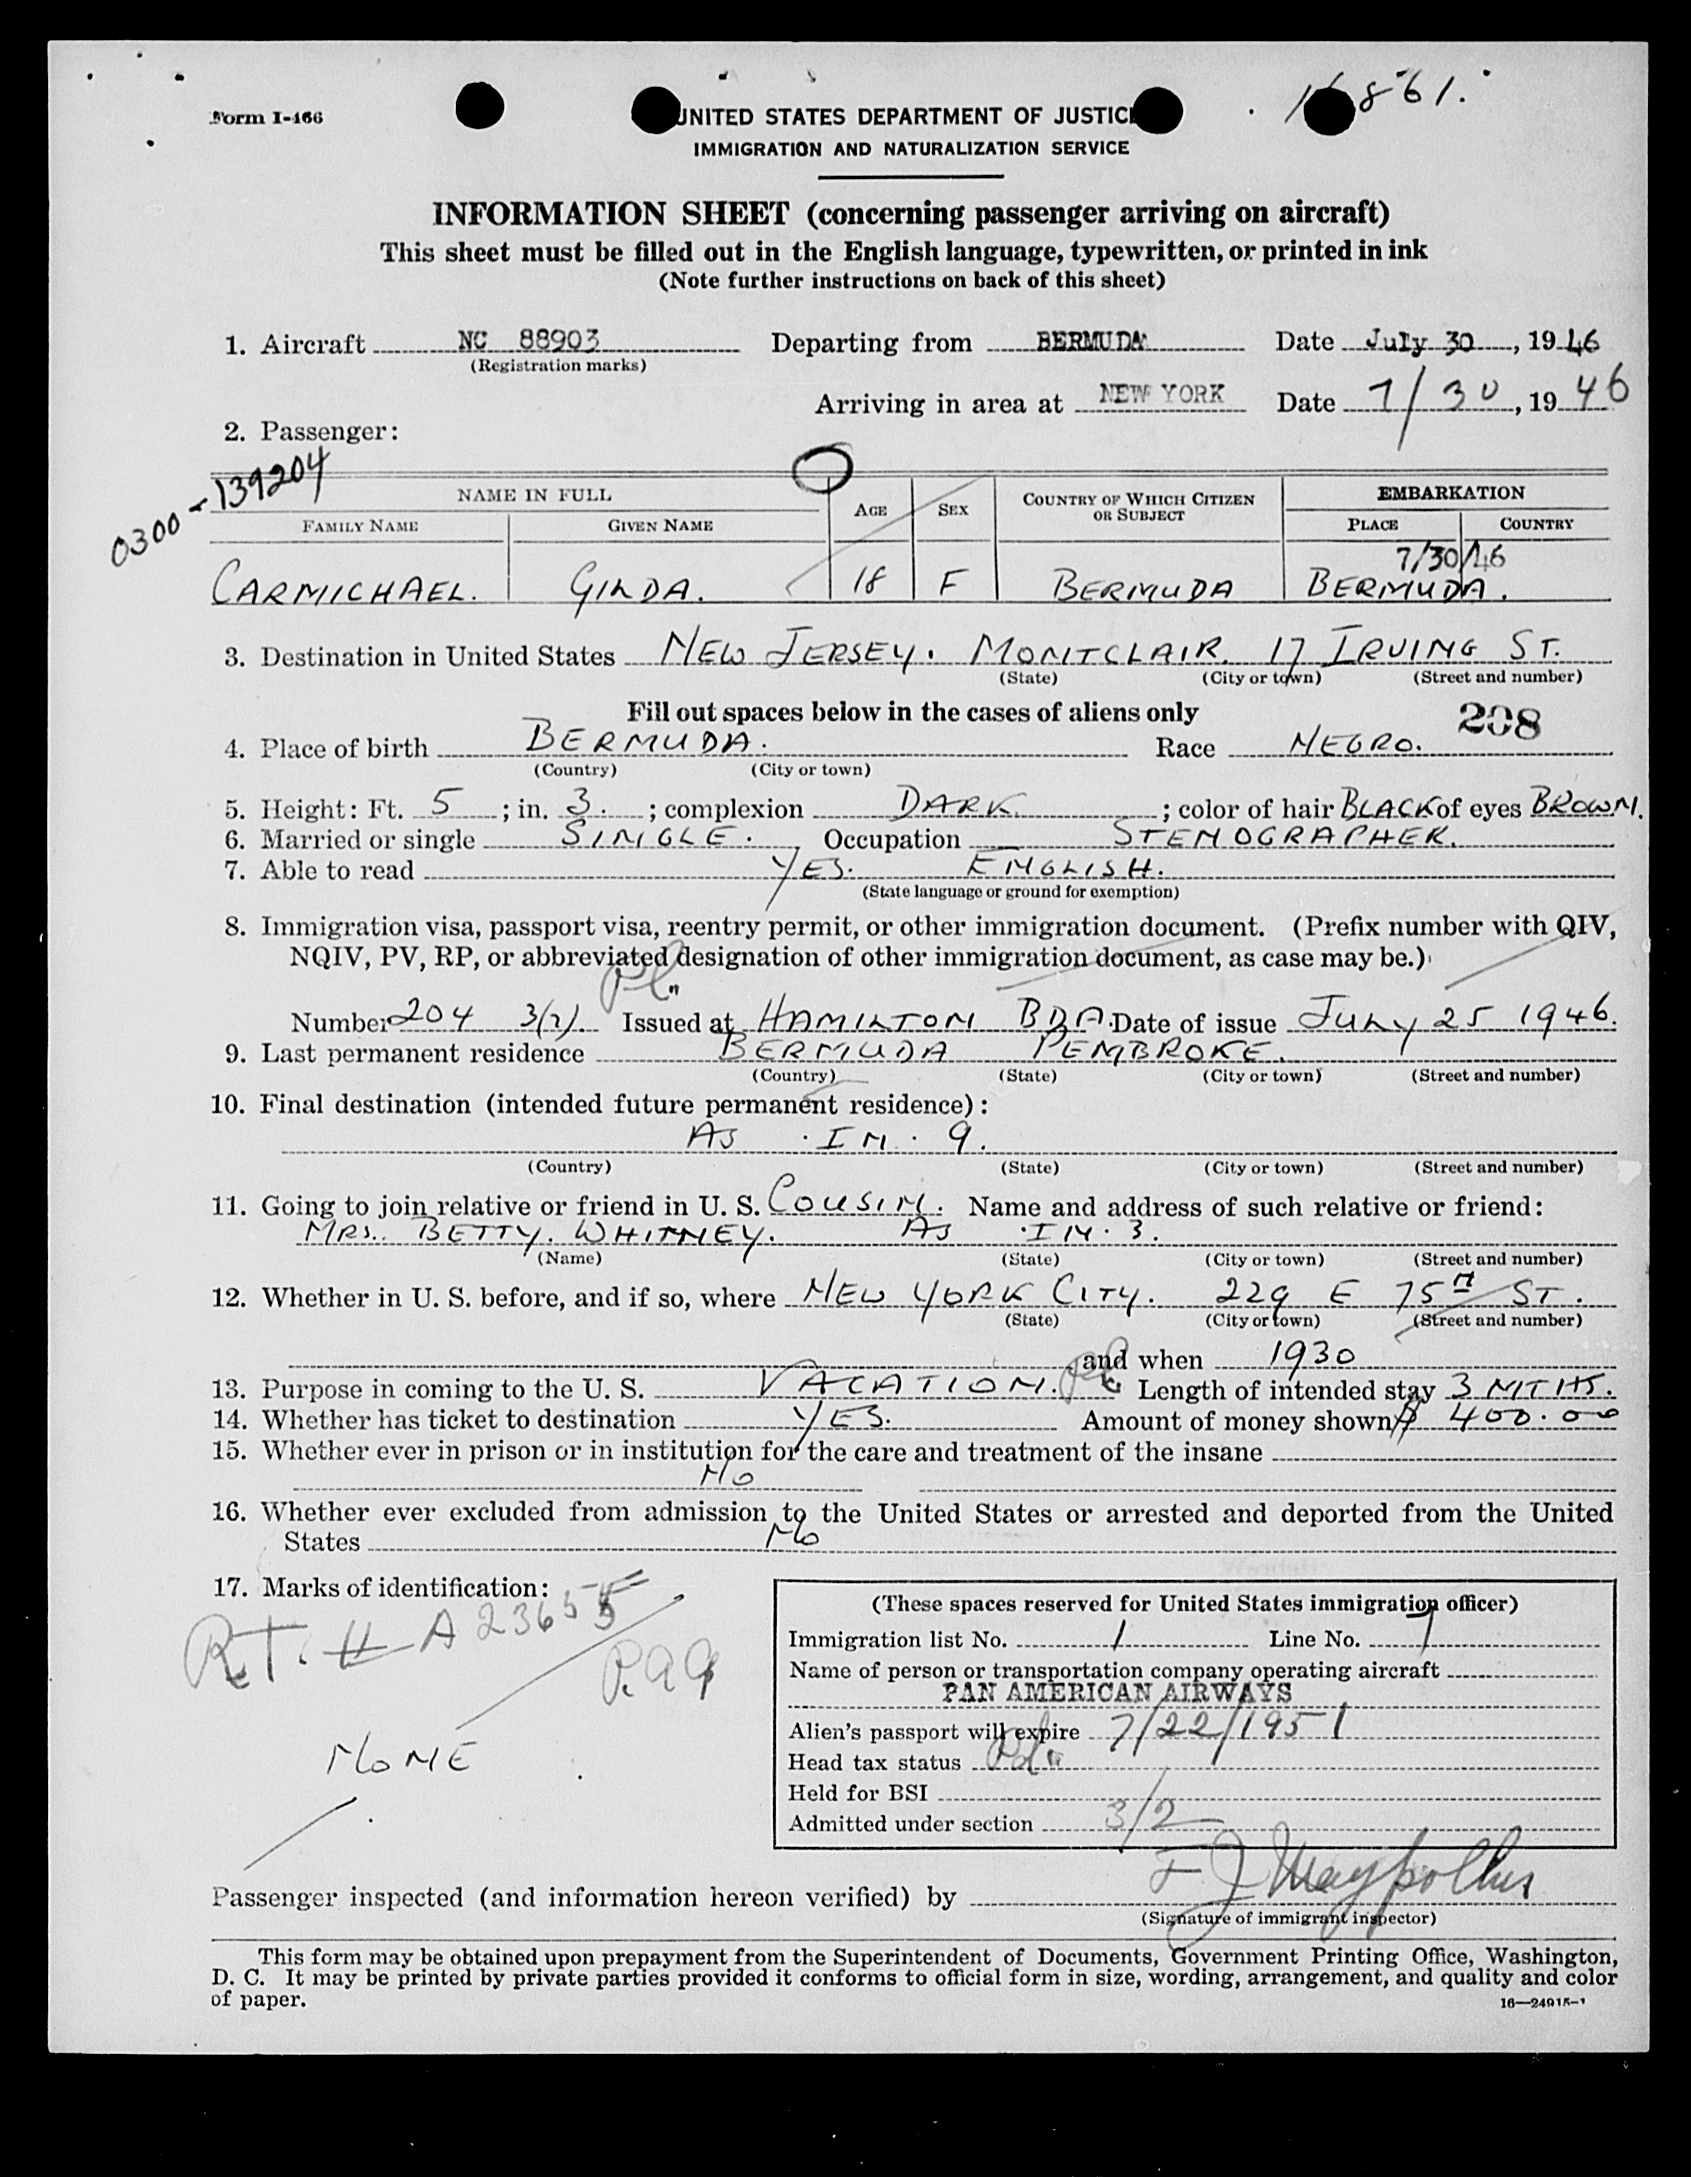 Form I-466
UNITED STATES DEPARTMENT OF JUSTICE
IMMIGRATION AND NATURALIZATION SERVICE
INFORMATION SHEET (concerning passenger arriving on aircraft)
This sheet must be filled out in the English language, typewritten, or printed in ink
(Note further instructions on back of this sheet)
1. Aircraft NC 88903 Departing from BERMUDA Date July 30, 1946
(Registration marks)
Arriving in area at NEW YORK Date 7/30, 1946
2. Passenger:
0300-139204
NAME IN FULL AGE SEX COUNTRY OF WHICH CITIZEN OR SUBJECT EMBARKATION
FAMILY NAME GIVEN NAME PLACE COUNTRY
7/30/46
CARMICHAEL. GILDA. 18 F BERMUDA BERMUDA.
3. Destination in United States NEW JERSEY. MONTCLAIR. 17 IRVING ST.
(State) (City or town) (Street and number)
Fill out spaces below in the cases of aliens only 208
4. Place of birth BERMUDA. Race NEGRO.
(Country) (City or town)
5. Height: Ft. 5; in. 3.; complexion DARK; color of hair BLACK of eyes BROWN.
6. Married or single SINGLE. Occupation STENOGRAPHER.
7. Able to read YES. ENGLISH.
(State language or ground for exemption)
8. Immigration visa, passport visa, reentry permit, or other immigration document. (Prefix number with QIV,
NQIV, PV, RP, or abbreviated designation of other immigration document, as case may be.)
Number 204 3(2). Issued at HAMILTON BDA. Date of issue JULY 25 1946.
9. Last permanent residence BERMUDA PEMBROKE.
(Country) (State) (City or town) (Street and number)
10. Final destination (intended future permanent residence):
AS . IN . 9.
(Country) (State) (City or town) (Street and number)
11. Going to join relative or friend in U. S. COUSIN. Name and address of such relative or friend:
MRS. BETTY. WHITNEY. AS . IN . 3.
(Name) (State) (City or town) (Street and number)
12. Whether in U. S. before, and if so, where NEW YORK CITY. 229 E 75TH ST.
(State) (City or town) (Street and number)
, and when 1930
13. Purpose in coming to the U. S. VACATION. Length of intended stay 3 MTHS.
14. Whether has ticket to destination YES. Amount of money shown $ 400.00
15. Whether ever in prison or in institution for the care and treatment of the insane
NO
16. Whether ever excluded from admission to the United States or arrested and deported from the United
States NO
17. Marks of identification:
RT. # A 23655
NONE
(These spaces reserved for United States immigration officer)
Immigration list No. 1 Line No. 7
Name of person or transportation company operating aircraft
PAN AMERICAN AIRWAYS
Alien's passport will expire 7/22/1951
Head tax status Pd.
Held for BSI
Admitted under section 3/2
Passenger inspected (and information hereon verified) by
(Signature of immigrant inspector)
This form may be obtained upon prepayment from the Superintendent of Documents, Government Printing Office, Washington,
D. C. It may be printed by private parties provided it conforms to official form in size, wording, arrangement, and quality and color
of paper. 16—24915-1